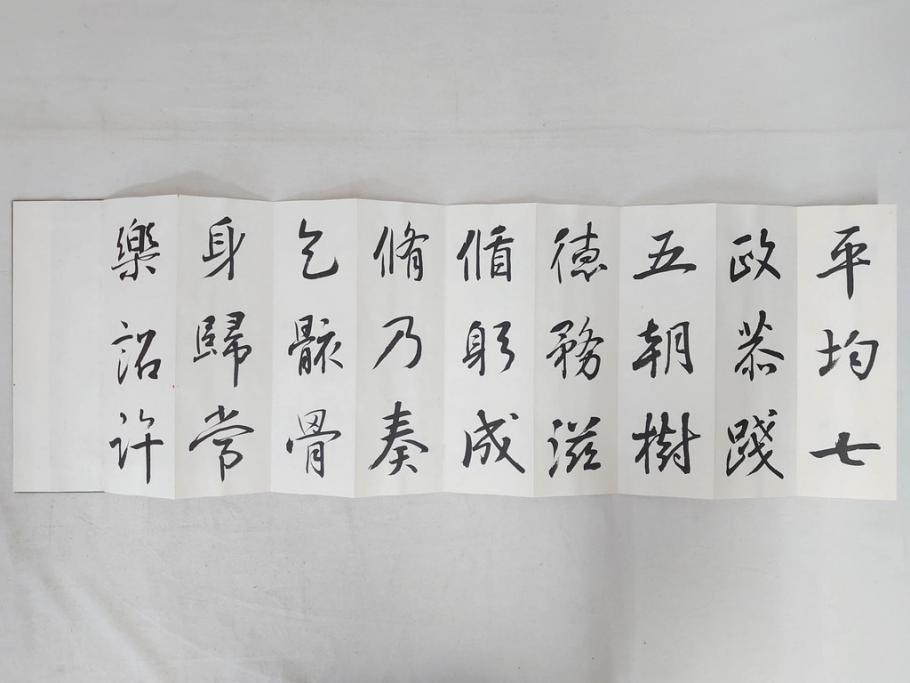 平均七
政恭踐
五朝樹
德務滋
循躬成
脩乃奏
乞骸骨
身歸常
樂詔許